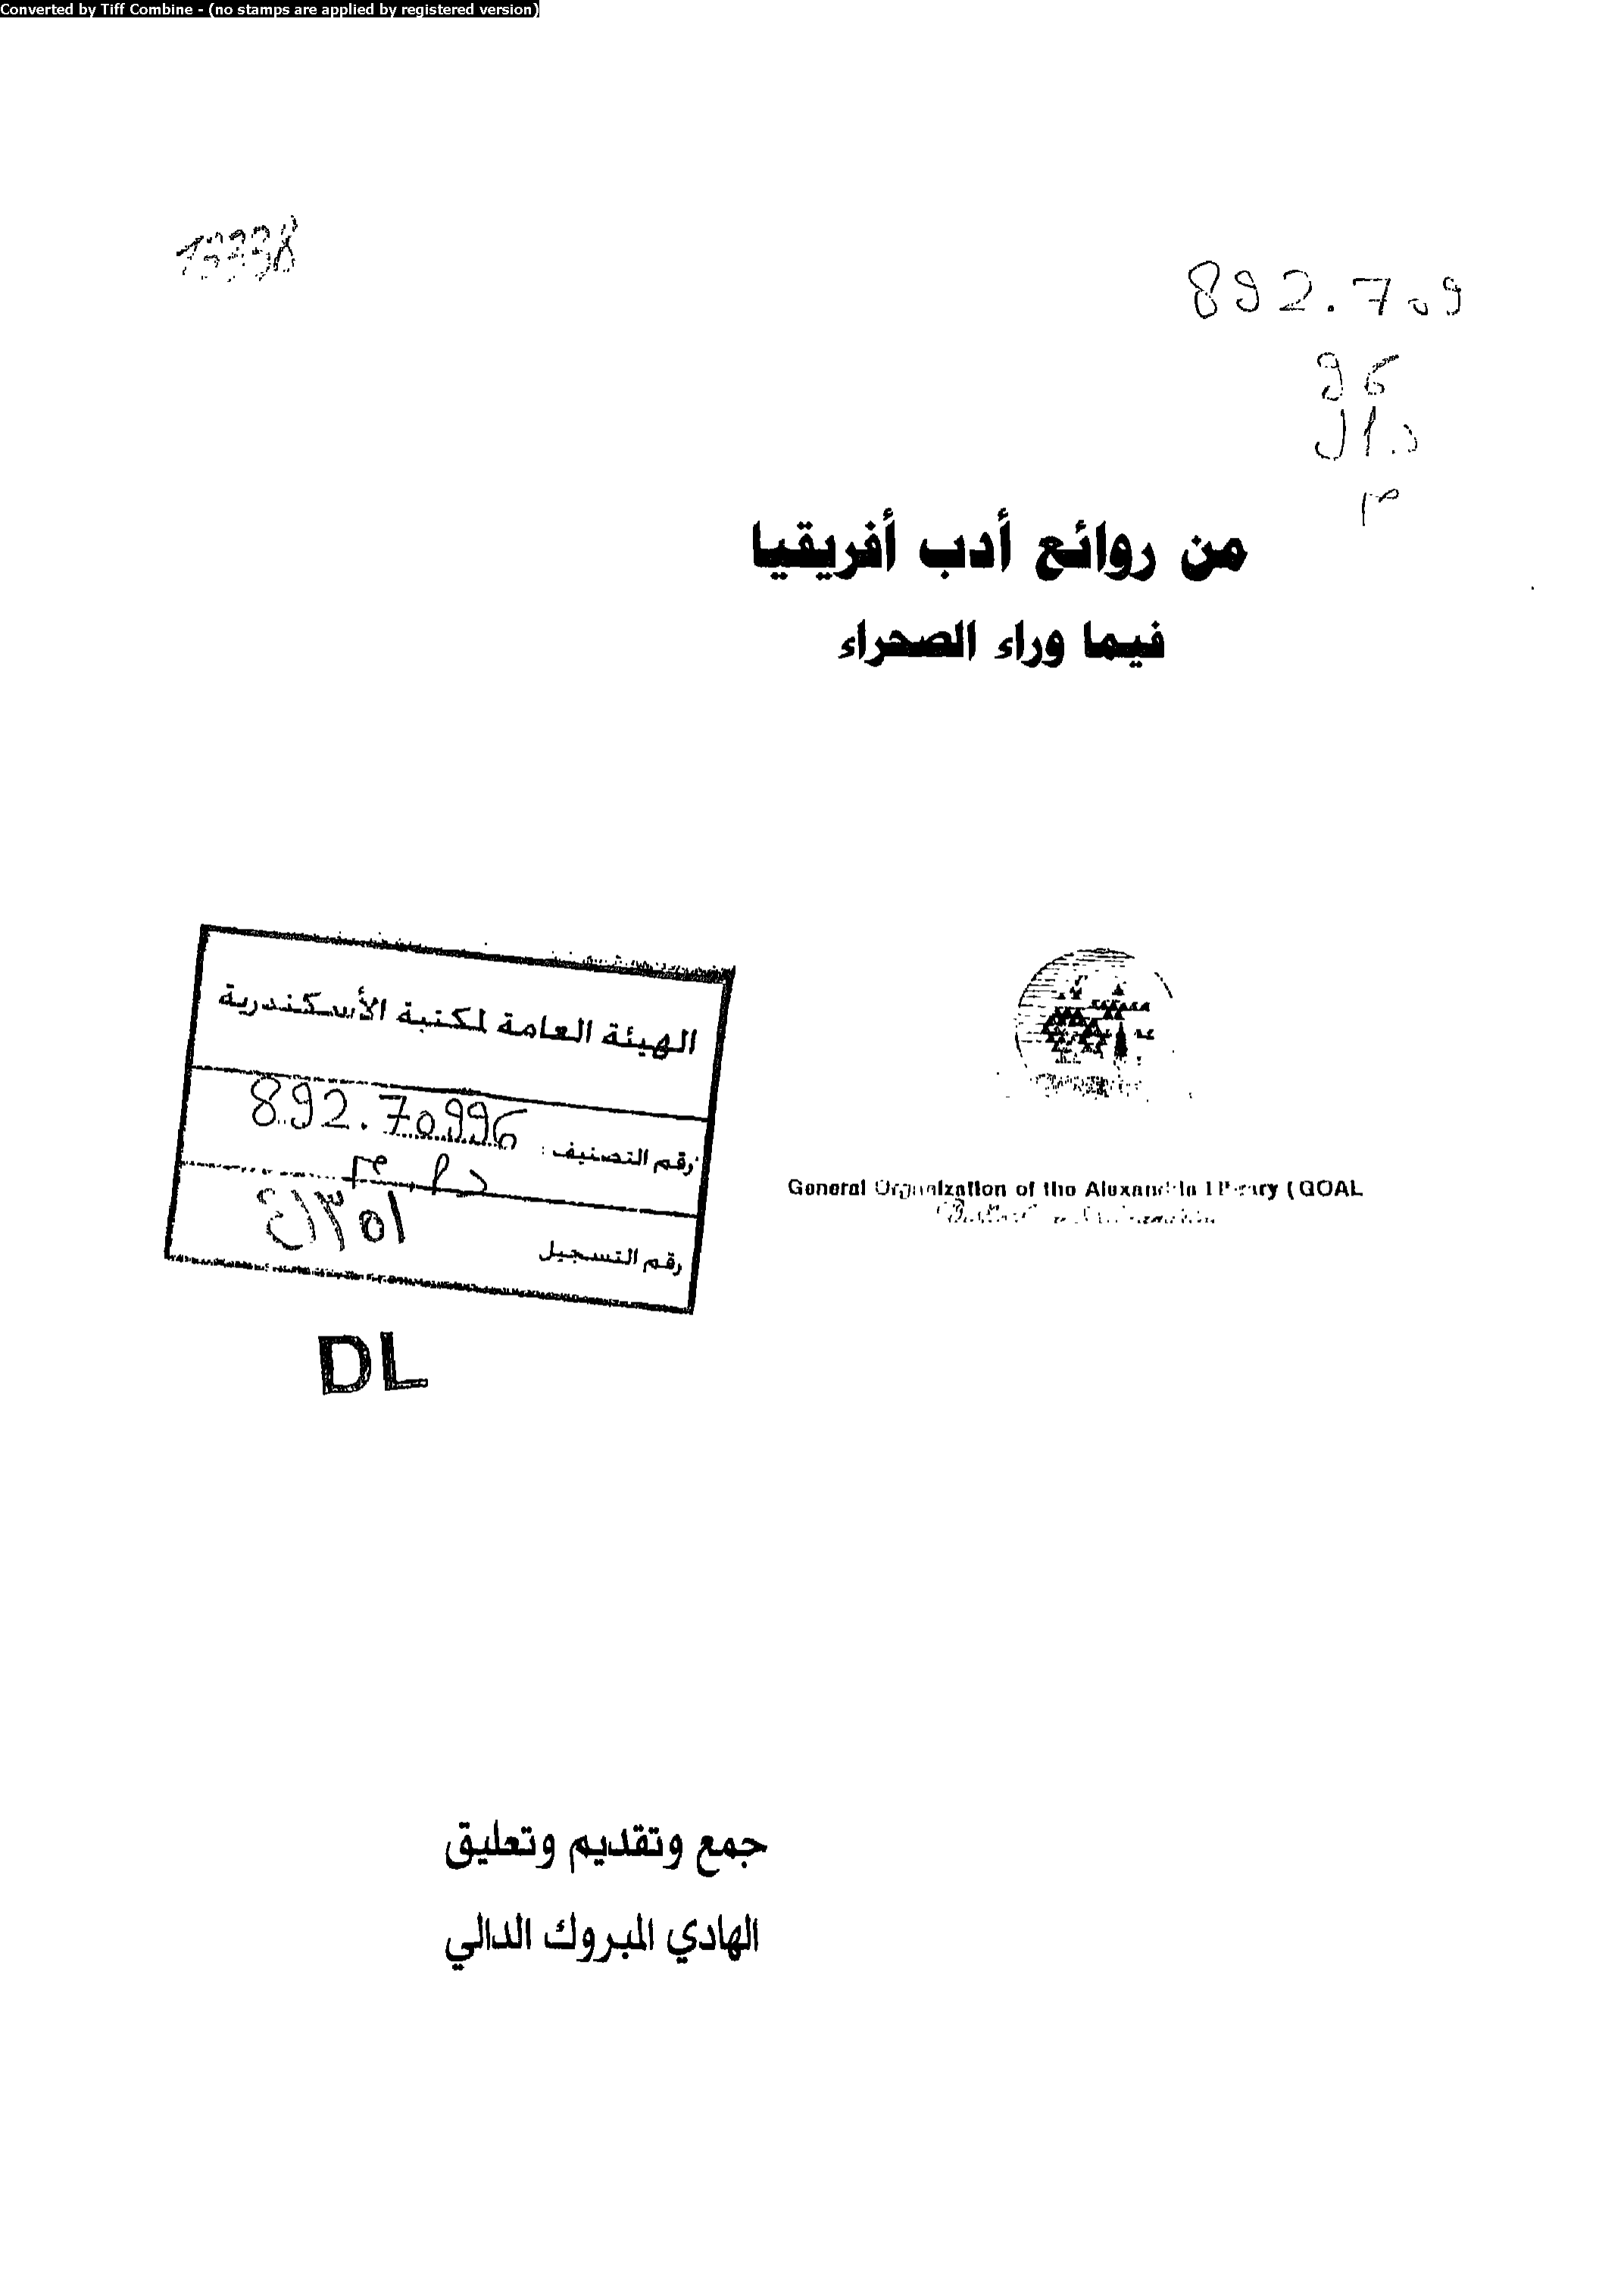 Converted by Tiff Combine - (no stamps are applied by registered version)
892.709
96
من روائع أدب أفريقيا
فيما وراء الصحراء
الهيئة العامة لمكتبة الأسكندرية
رقم التصنيف : 892.70996
رقم التسجيل
General Organization of the Alexandria Library (GOAL
DL
جمع وتقديم وتعليق
الهادي المبروك الدالي